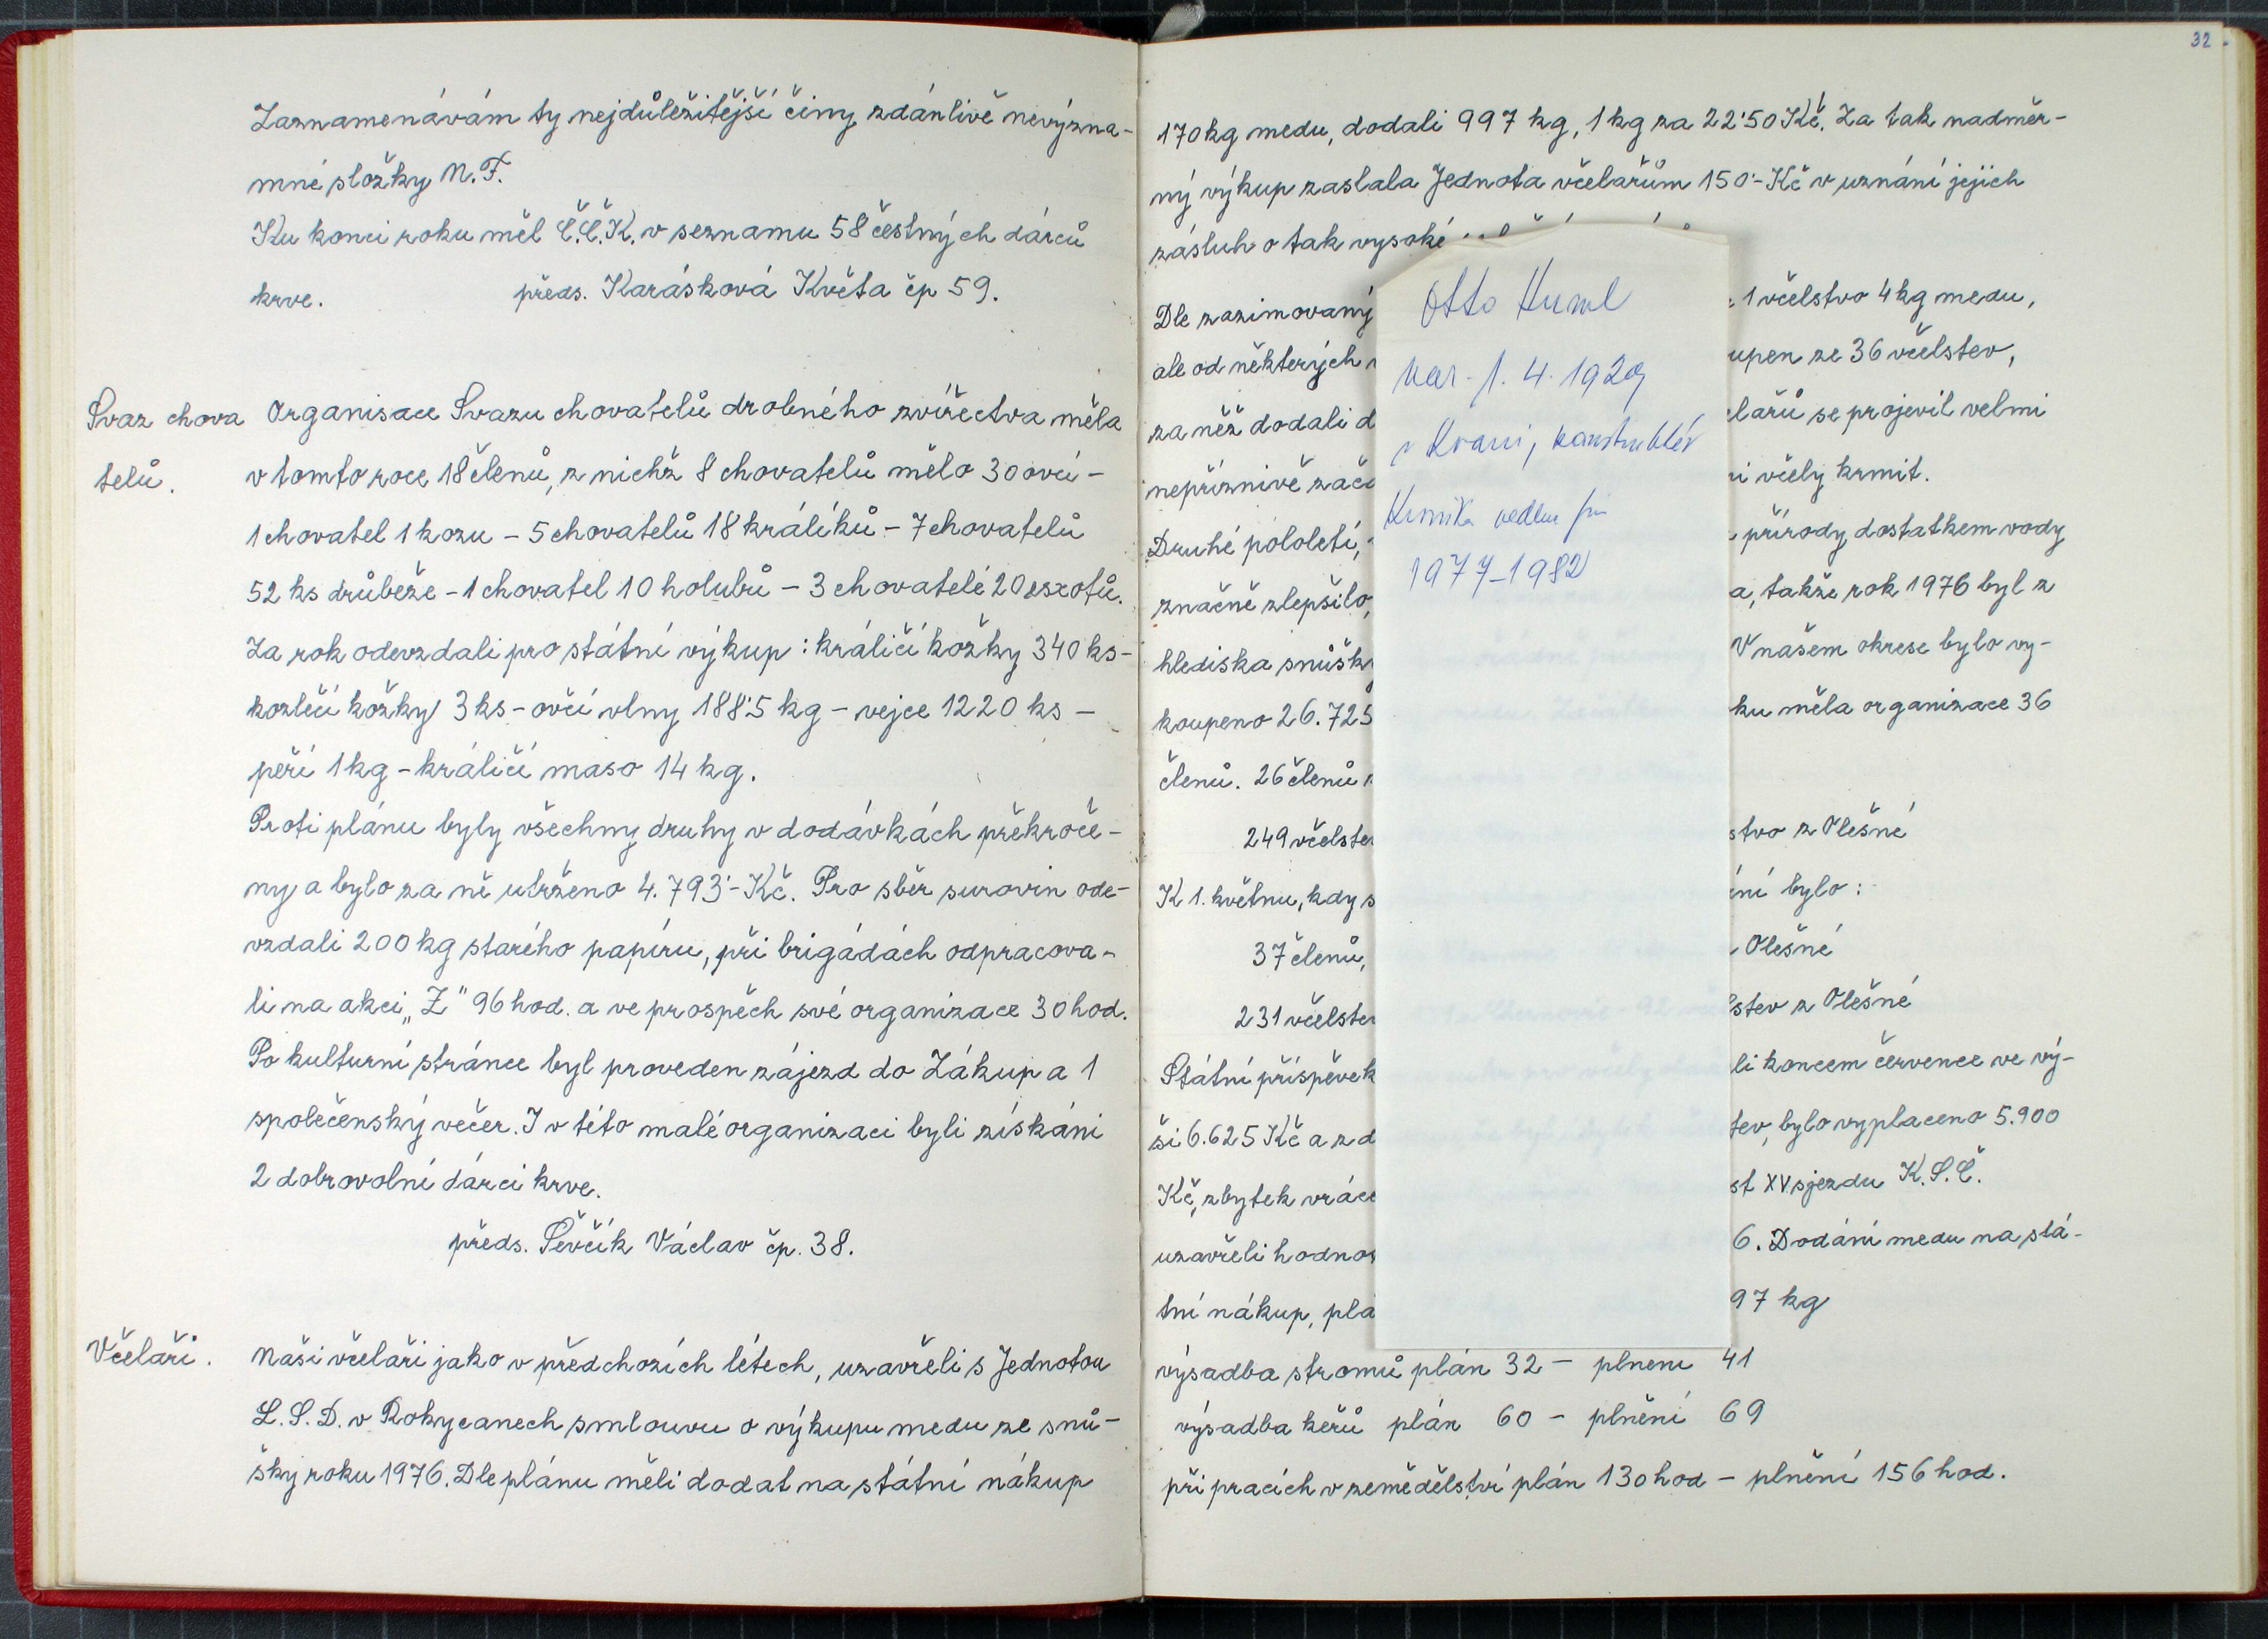 Zaznamenávám ty nejdůležitější činy zdánlivě nevýzna-
mné složky N.F.
Ku konci roku měl Č.Č.K. v seznamu 58 čestných dárců
krve. předs. Karásková Květa čp 59.
Svaz chova
telů.
Organisace Svazu chovatelů drobného zvířectva měla
v tomto roce 18 členů, z nichž 8 chovatelů mělo 30 ovcí -
1 chovatel 1 kozu - 5 chovatelů 18 králíků - 7 chovatelů
52 ks drůbeže - 1 chovatel 10 holubů - 3 chovatelé 20 exotů.
Za rok odevzdali pro státní výkup : králičí kožky 340 ks -
kozlečí kožky 3 ks - ovčí vlny 188'5 kg - vejce 1220 ks -
peří 1 kg - králičí maso 14 kg.
Proti plánu byly všechny druhy v dodávkách překroče-
ny a bylo za ně utrženo 4.793'- Kč. Pro sběr surovin ode-
vzdali 200 kg starého papíru, při brigádách odpracova-
li na akci „Z" 96 hod. a ve prospěch své organizace 30 hod.
Po kulturní stránce byl proveden zájezd do Zákup a 1
společenský večer. I v této malé organizaci byli získáni
2 dobrovolní dárci krve.
předs. Ševčík Václav čp. 38.
Včelaři.
Naši včelaři jako v předchozích létech, uzavřeli s Jednotou
L.S.D. v Rokycanech smlouvu o výkupu medu ze snů-
šky roku 1976. Dle plánu měli dodat na státní nákup
32
170 kg medu, dodali 997 kg, 1 kg za 22'50 Kč. Za tak nadměr-
ný výkup zaslala Jednota včelařům 150'- Kč v uznání jejich
zásluh o tak vysoké
Dle zazimovaný 1 včelstvo 4 kg medu,
ale od některých upen ze 36 včelstev,
za něž dodali d lařů se projevil velmi
nepříznivě zača i včely krmit.
Druhé pololetí, přírody, dostatkem vody
značně zlepšilo, a, takže rok 1976 byl z
hlediska snůšky V našem okrese bylo vy-
koupeno 26.725 ku měla organizace 36
členů. 26 členů
249 včelstev stvo z Olešné
K 1. květnu, kdy s ní bylo :
37 členů, Olešné
231 včelstev lstev z Olešné
Státní příspěvek li koncem července ve vý-
ši 6.625 Kč a z d tev, bylo vyplaceno 5.900
Kč, zbytek vráce st XV sjezdu K.S.Č.
uzavřeli hodno 6. Dodání medu na stá-
tní nákup, plá 97 kg
výsadba stromů plán 32 - plnení 41
výsadba keřů plán 60 - plnění 69
při pracích v zemědělství plán 130 hod - plnění 156 hod.
Otto Huml
nar. 1. 4. 1929
konstruktér
1977-1982